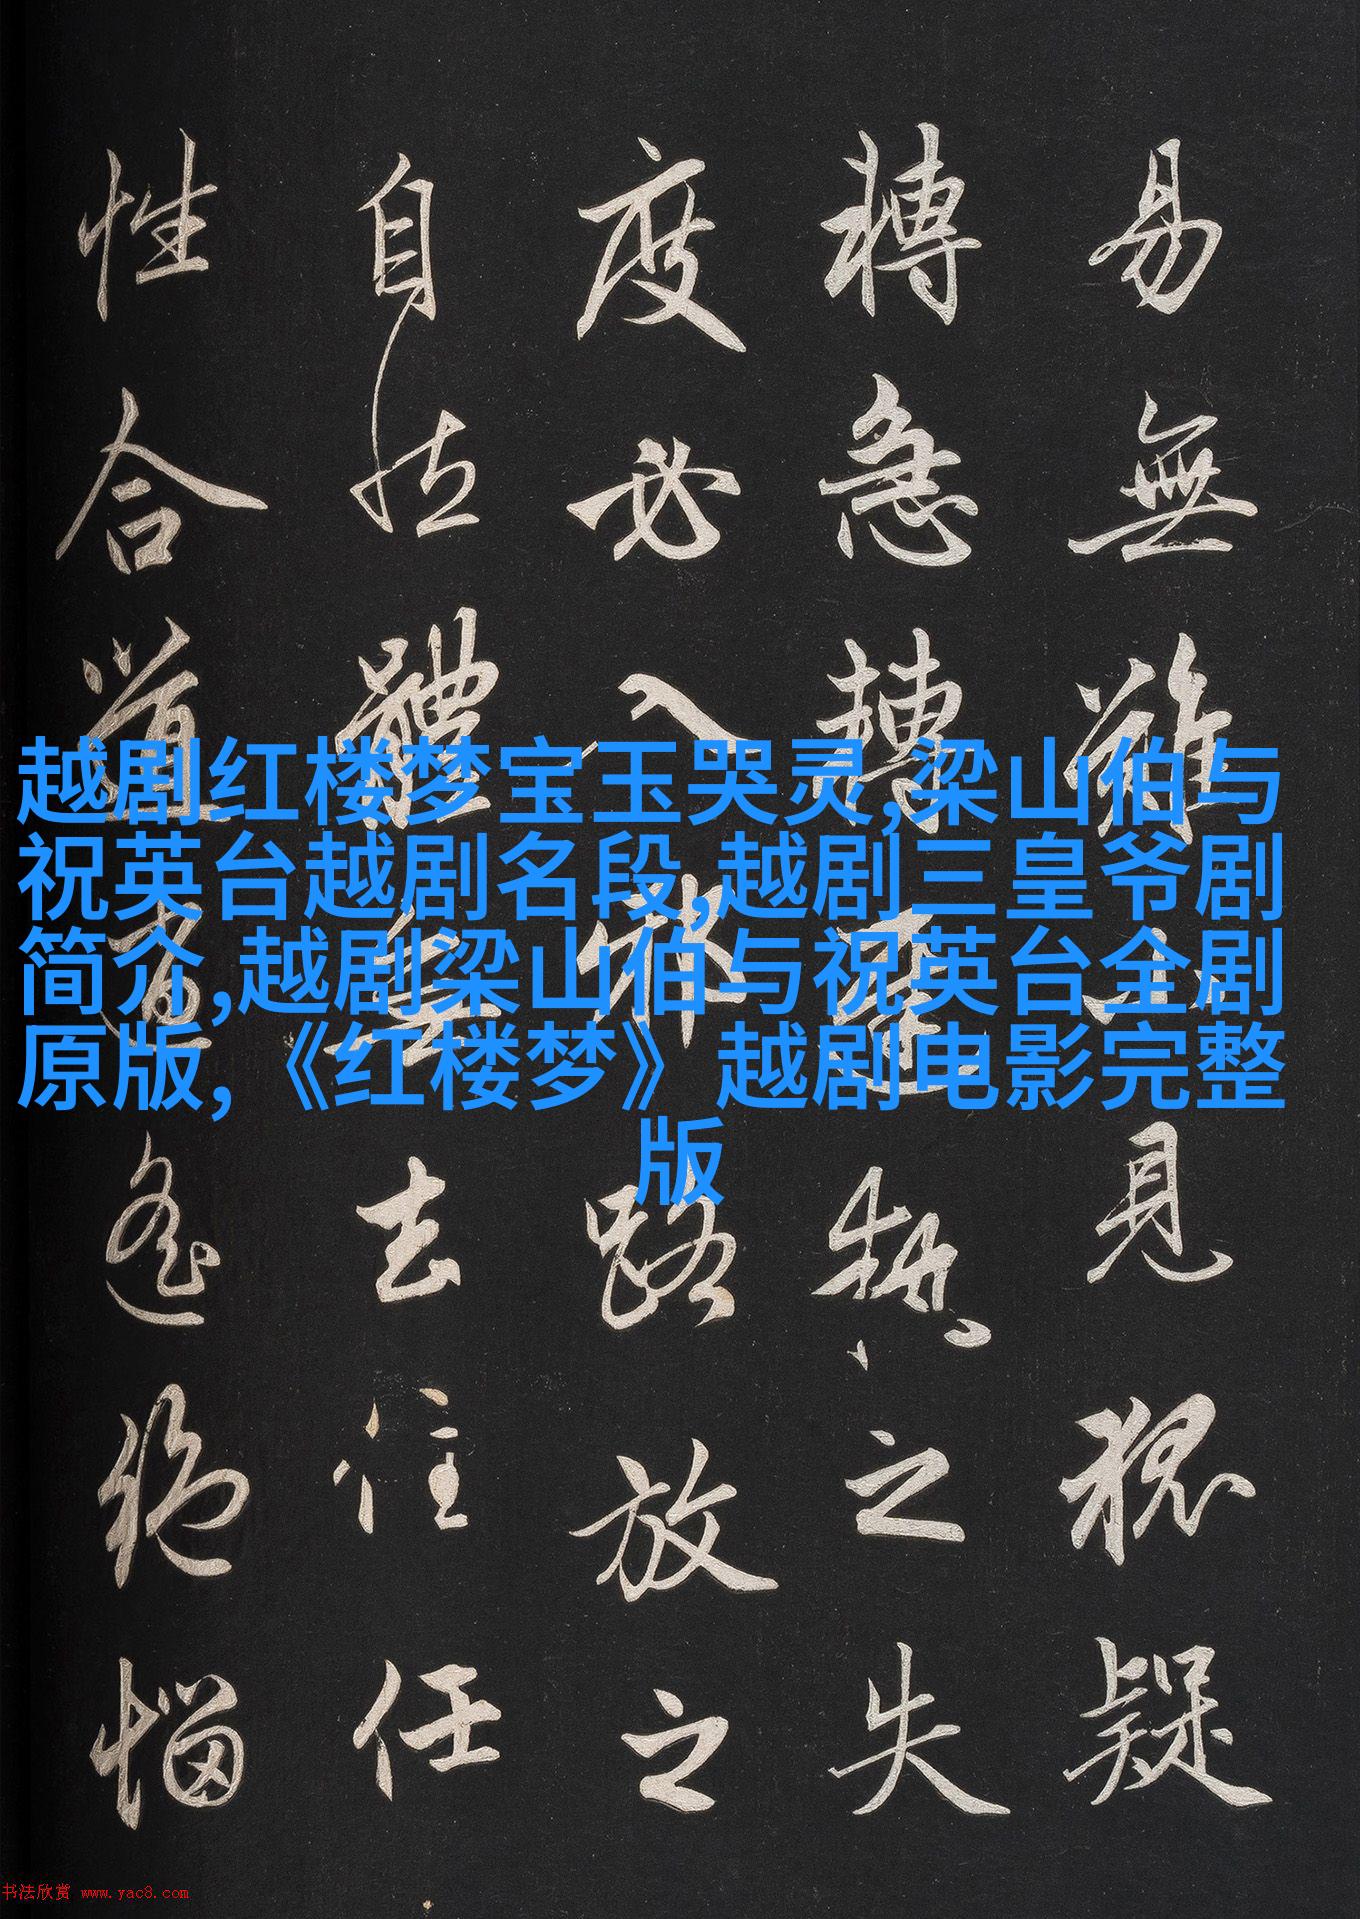 越剧红楼梦宝玉哭灵,梁山伯与
祝英台越剧名段,越剧三皇爷剧
简介,越剧梁山伯与祝英台全剧
原版,《红楼梦》越剧电影完整
版
易無難小見狐疑
轉急轉遲執之失
度必入邪路放之
自然體無去住任
性合道逍遙絕惱
书法欣赏 www.yac8.com